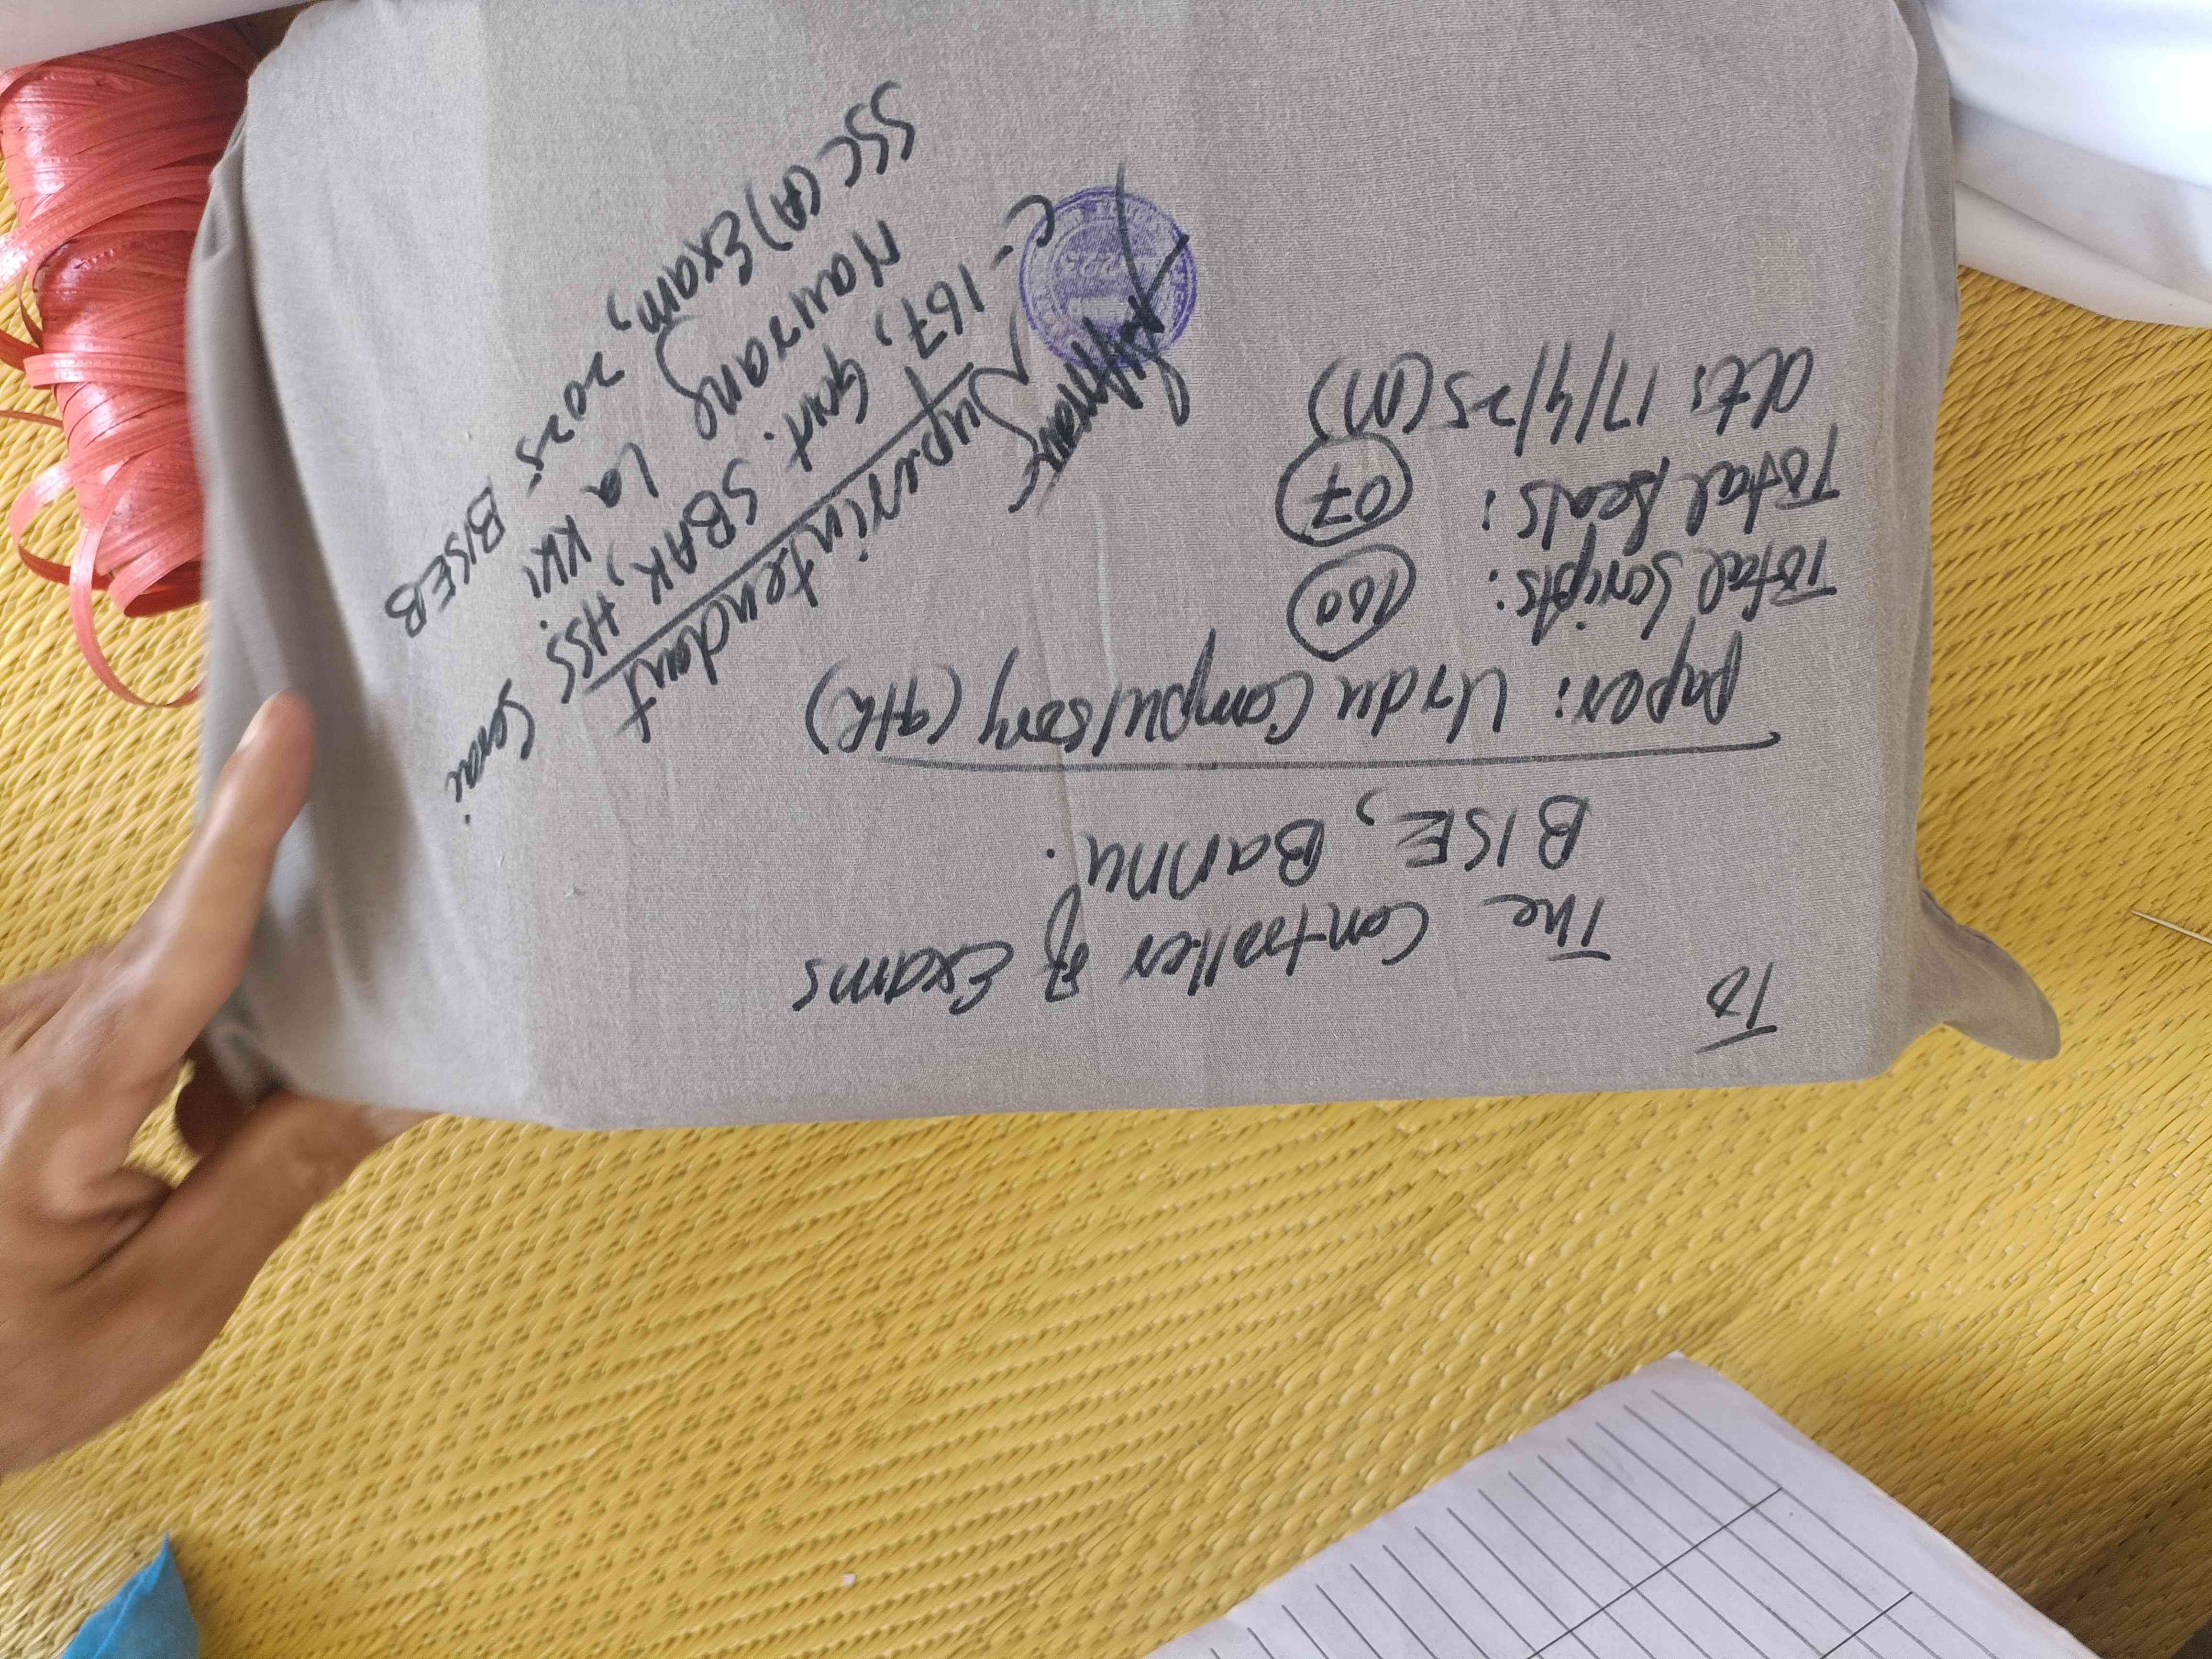 To
The Controller of Exams
BISE, Bannu.
Paper: Urdu Compulsory (9th)
Total Scripts: 100
Total Seals: 07
dt: 17/4/25 (M)
Superintendent
C-167, Govt. SBAK, HSS. Serai
Naurang La KK!
SSC (A) Exam, 2025 BISEB